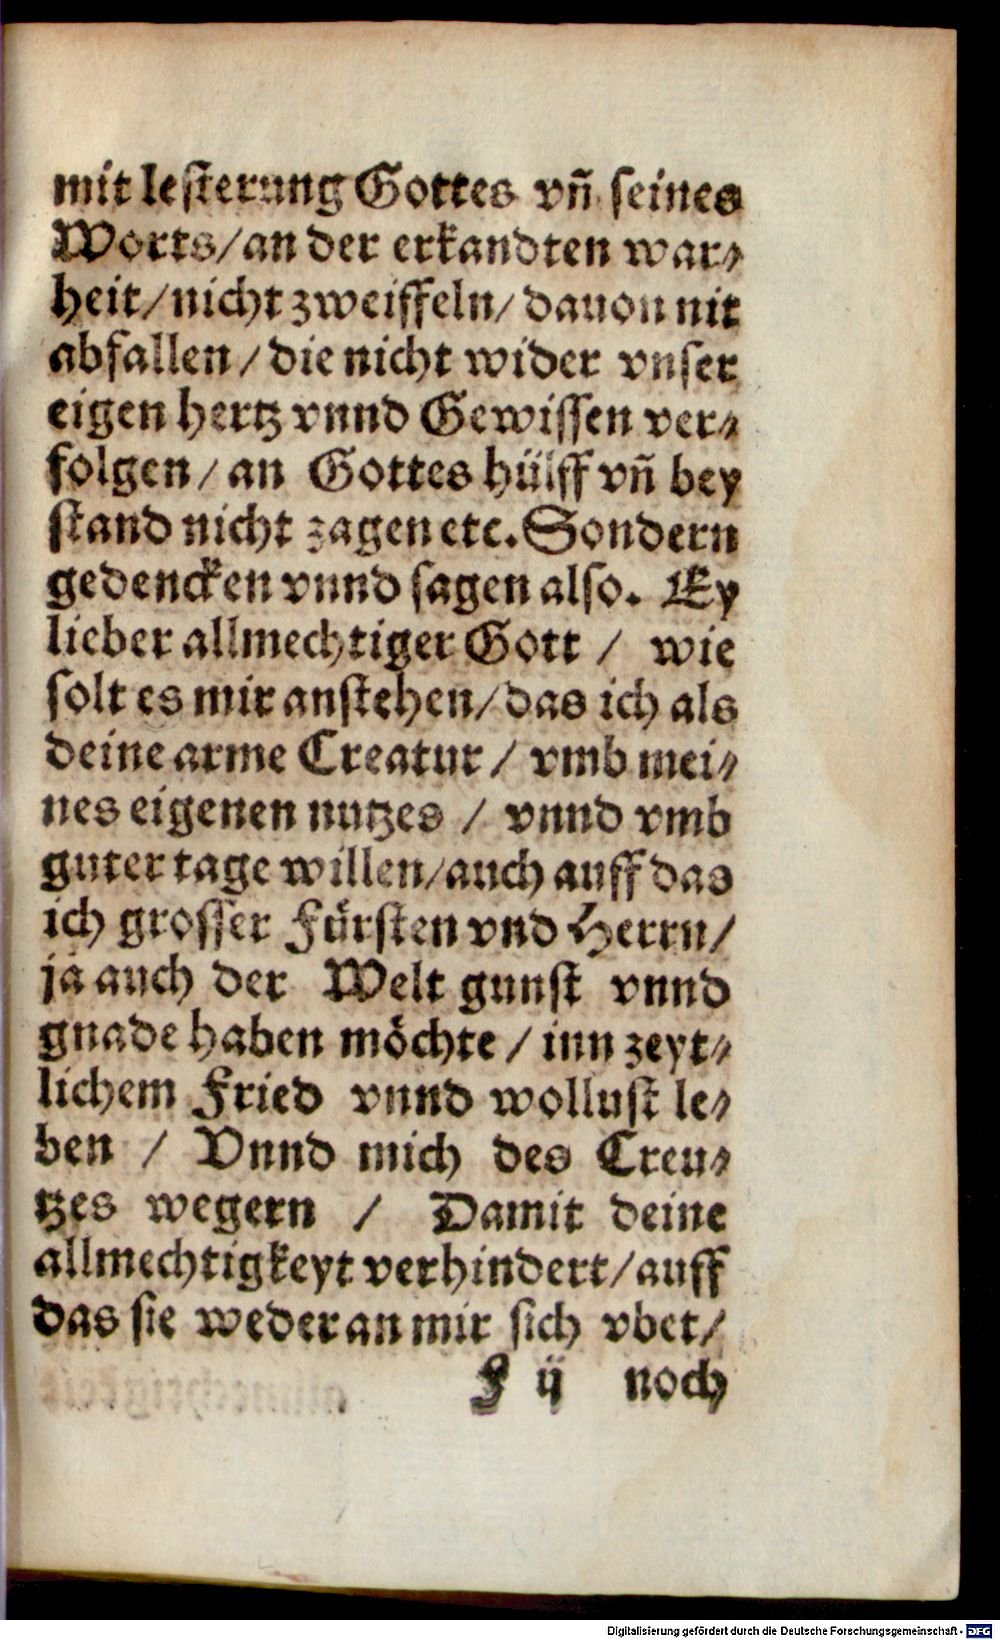 mit lesterung Gottes vñ seines
Worts/an der erkandten war⸗
heit/nicht zweiffeln/dauon nit
abfallen/die nicht wider vnser
eigen hertz vnnd Gewissen ver⸗
folgen/an Gottes hülff vñ bey
stand nicht zagen etc. Sondern
gedencken vnnd sagen also. Ey
lieber allmechtiger Gott / wie
solt es mir anstehen/das ich als
deine arme Creatur / vmb mei⸗
nes eigenen nutzes / vnnd vmb
guter tage willen/auch auff das
ich grosser Fürsten vnd Herrn/
ja auch der Welt gunst vnnd
gnade haben möchte / inn zeyt⸗
lichem Fried vnnd wollust le⸗
ben / Vnnd mich des Creu⸗
tzes wegern / Damit deine
allmechtigkeyt verhindert/auff
das sie weder an mir sich vbet/
F ij noch
Digitalisierung gefördert durch die Deutsche Forschungsgemeinschaft - DFG